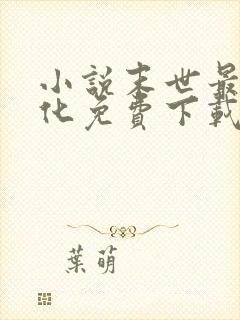 小説末世最
化免費下載
葉萌